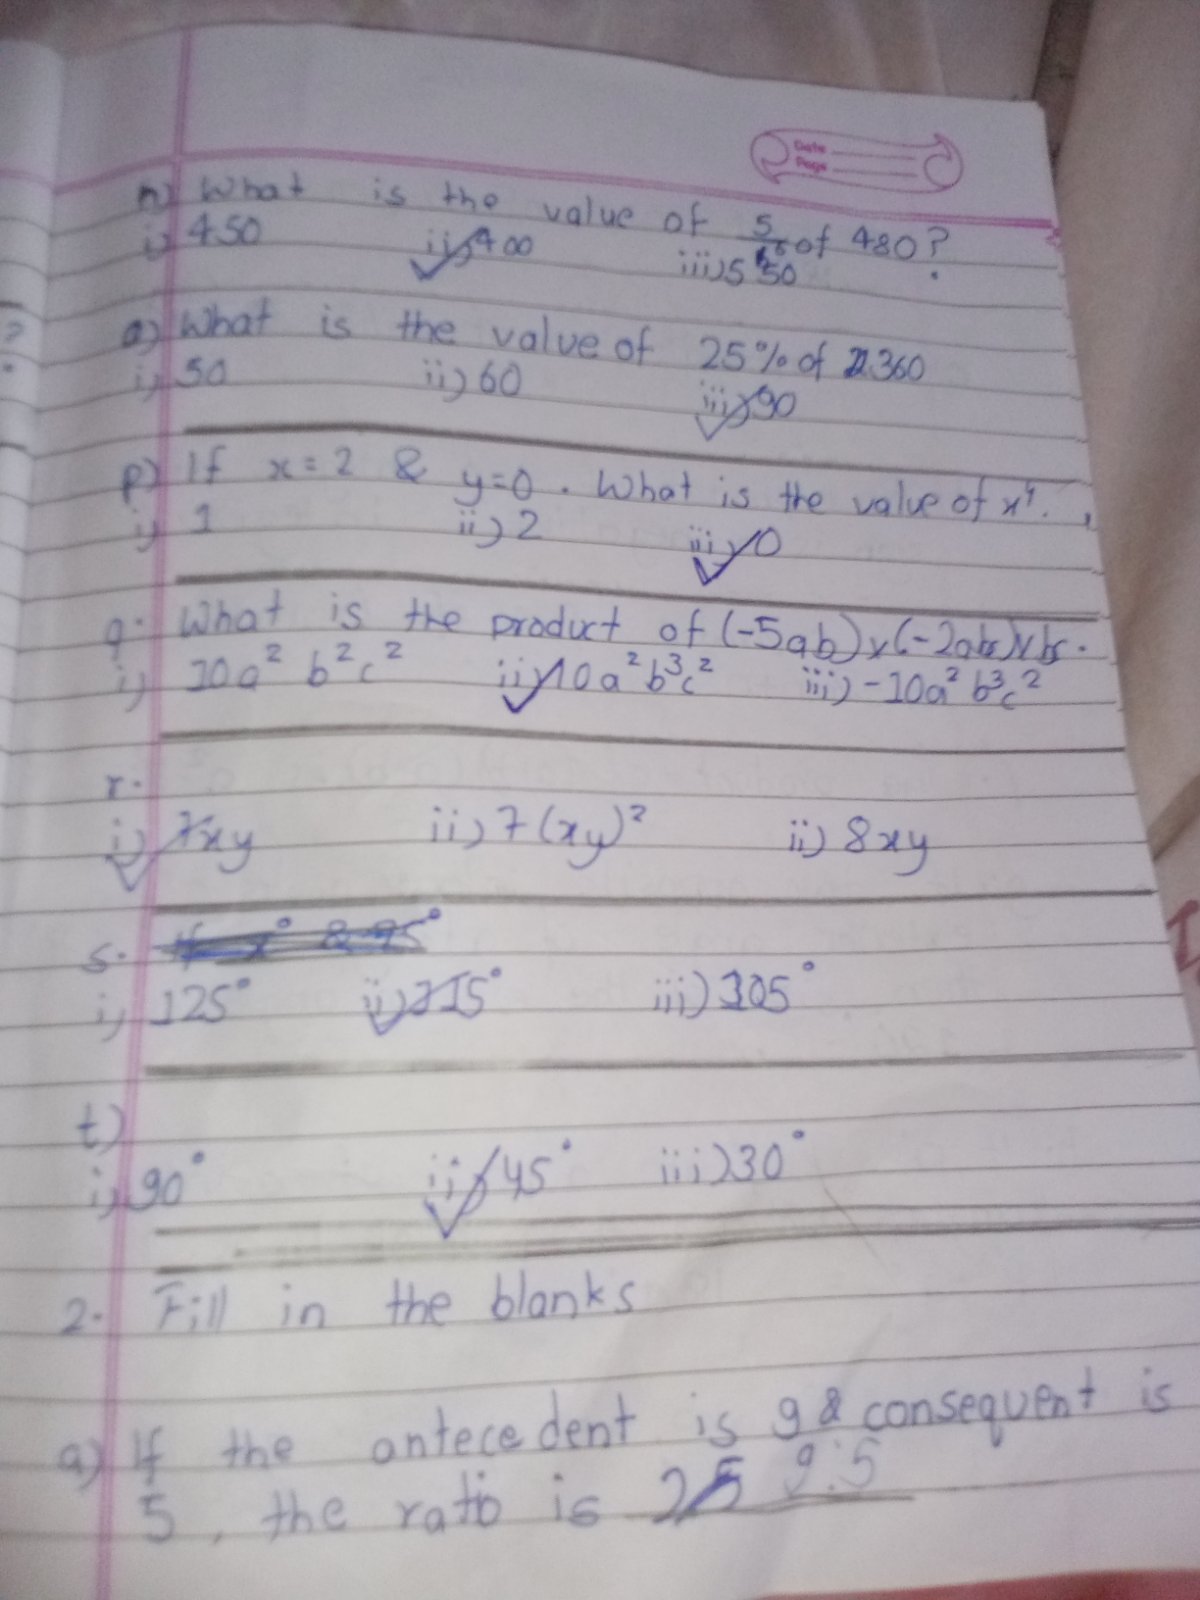 Date
Page
n) What is the value of 5/6 of 480?
i) 450 ii) 400 iii) 550
o) What is the value of 25% of 360
i) 50 ii) 60 iii) 90
p) If x=2 & y=0. What is the value of xʸ.
i) 1 ii) 2 iii) 0
q. What is the product of (-5ab)x(-2abc)x bc.
i) 10a² b² c² ii) 10a²b³c² iii) -10a² b³c²
r.
i) 7xy ii) 7(xy)² ii) 8xy
s.
i) 125° ii) 115° iii) 105°
t)
i) 90° ii) 45° iii) 30°
2. Fill in the blanks
a) If the antecedent is 9 & consequent is
5, the ratio is 9:5